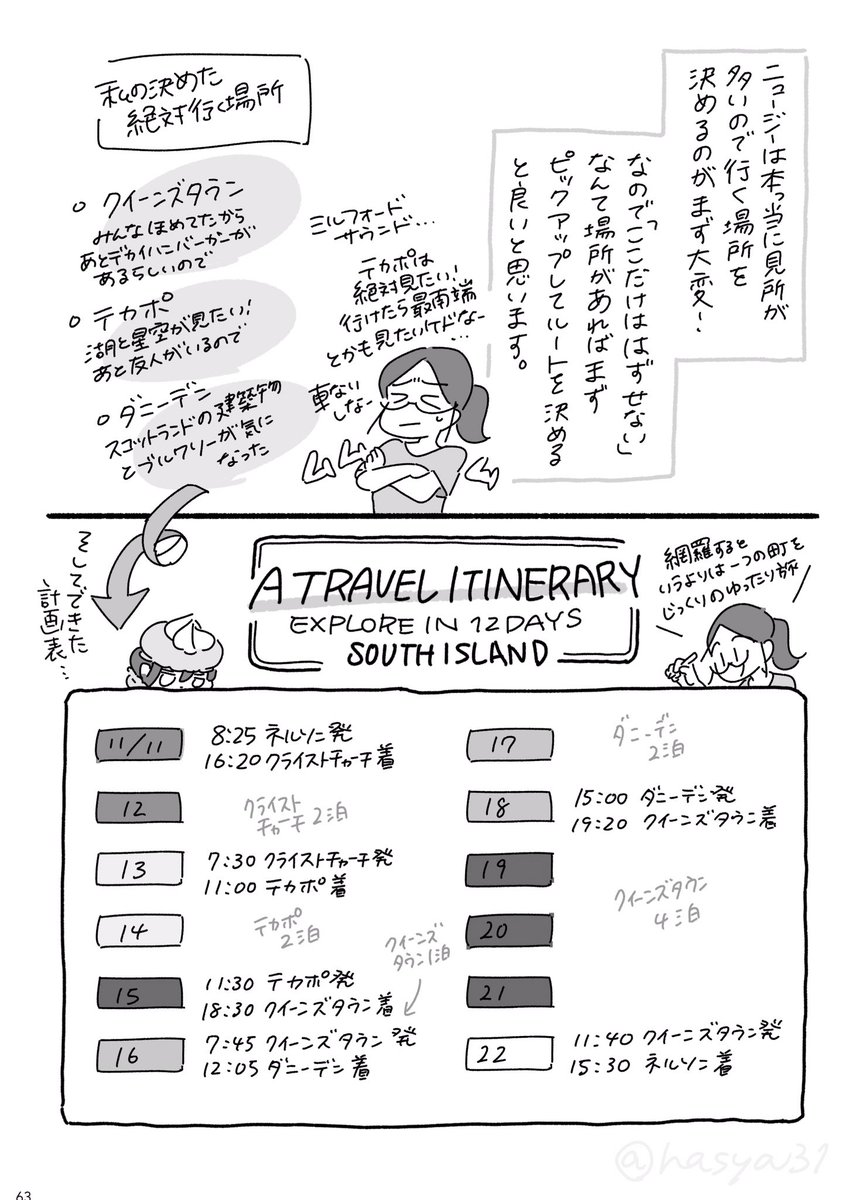 ニュージーは本当に見所が
多いので行く場所を
決めるのがまず大変!
なので「ここだけははずせない」
なんて場所があればまず
ピックアップしてルートを決める
と良いと思います。
私の決めた
絶対行く場所
クイーンズタウン
みんなほめてたから
あとデカイハンバーガーが
あるらしいので
テカポ
湖と星空が見たい!
あと友人がいるので
ダニーデン
スコットランドの建築物
とブルワリーが気に
なった
ミルフォード
サウンド…
テカポは
絶対見たい!
行けたら最南端
とかも見たいケドなー
…
車ない
しなー
ムムム
そしてできた
計画表…
A TRAVEL ITINERARY
EXPLORE IN 12 DAYS
SOUTH ISLAND
網羅すると
いうよりは一つの町を
じっくりのゆったり旅
11/11
8:25 ネルソン発
16:20 クライストチャーチ着
12
クライスト
チャーチ 2泊
13
7:30 クライストチャーチ発
11:00 テカポ着
14
テカポ
2泊
15
11:30 テカポ発
18:30 クイーンズタウン着
クイーンズ
タウン1泊
16
7:45 クイーンズタウン発
12:05 ダニーデン着
17
ダニーデン
2泊
18
15:00 ダニーデン発
19:20 クイーンズタウン着
19
20
クイーンズタウン
4泊
21
22
11:40 クイーンズタウン発
15:30 ネルソン着
@hasya31
63